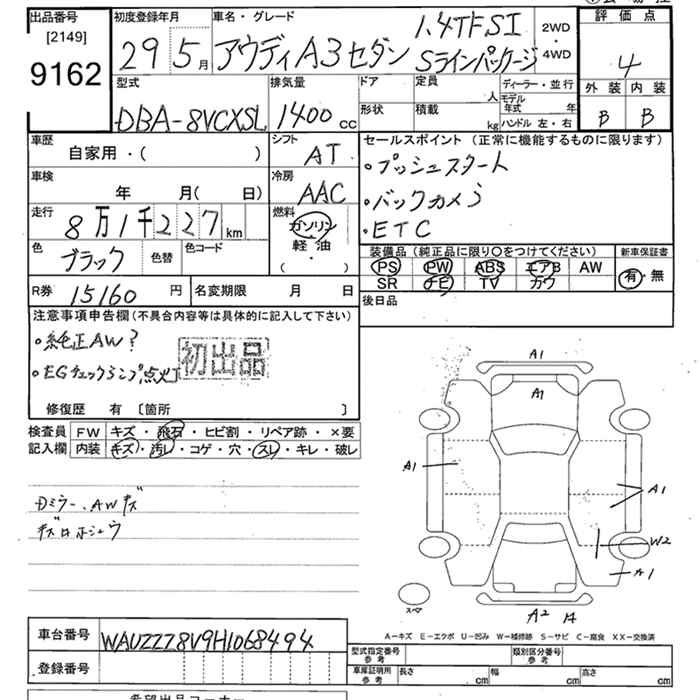 出品番号
[2149]
9162
初度登録年月
29 5月
車名・グレード
アウディA3セダン
1.4TFSI
Sラインパッケージ
2WD
・
4WD
評価点
4
外装 内装
B B
型式
DBA-8VCXSL
排気量
1400cc
ドア
形状
定員
人
積載
kg
ディーラー・並行
モデル年式 年
ハンドル 左・右
車歴
自家用・( )
シフト
AT
車検
年 月( 日)
冷房
AAC
走行
8万1千227km
燃料
ガソリン
軽・油
( )
色
ブラック
色替
色コード
R券
15160円
名変期限 月 日
セールスポイント (正常に機能するものに限ります)
・プッシュスタート
・バックカメラ
・ETC
装備品(純正品に限り〇をつけてください)
PS PW ABS エアB AW
SR ナビ TV カワ
新車保証書
有・無
後日品
注意事項申告欄(不具合内容等は具体的に記入して下さい)
・純正AW?
・EGチェックランプ点灯
初出品
修復歴 有 〔箇所 〕
検査員
記入欄
FW キズ・飛石・ヒビ割・リペア跡・×要
内装 キズ・汚レ・コゲ・穴・スレ・キレ・破レ
Dミラー、AWキズ
キズ口ホシュウ
A1
A1
A1
A1
W2
A1
スペア
A2
A-キズ E-エクボ U-凹み W-補修跡 S-サビ C-腐食 XX-交換済
車台番号
WAUZZZ8V9H1068494
登録番号
型式指定番号
参考
類別区分番号
参考
車庫証明用
参考
長さ cm 幅 cm 高さ cm